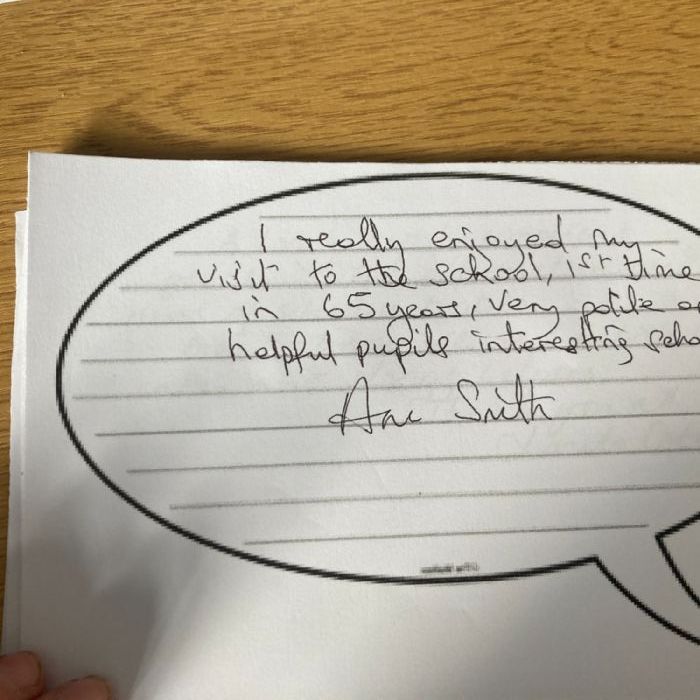 I really enjoyed my
visit to the school, 1st time
in 65 years, very polite
helpful pupils interesting
Smith